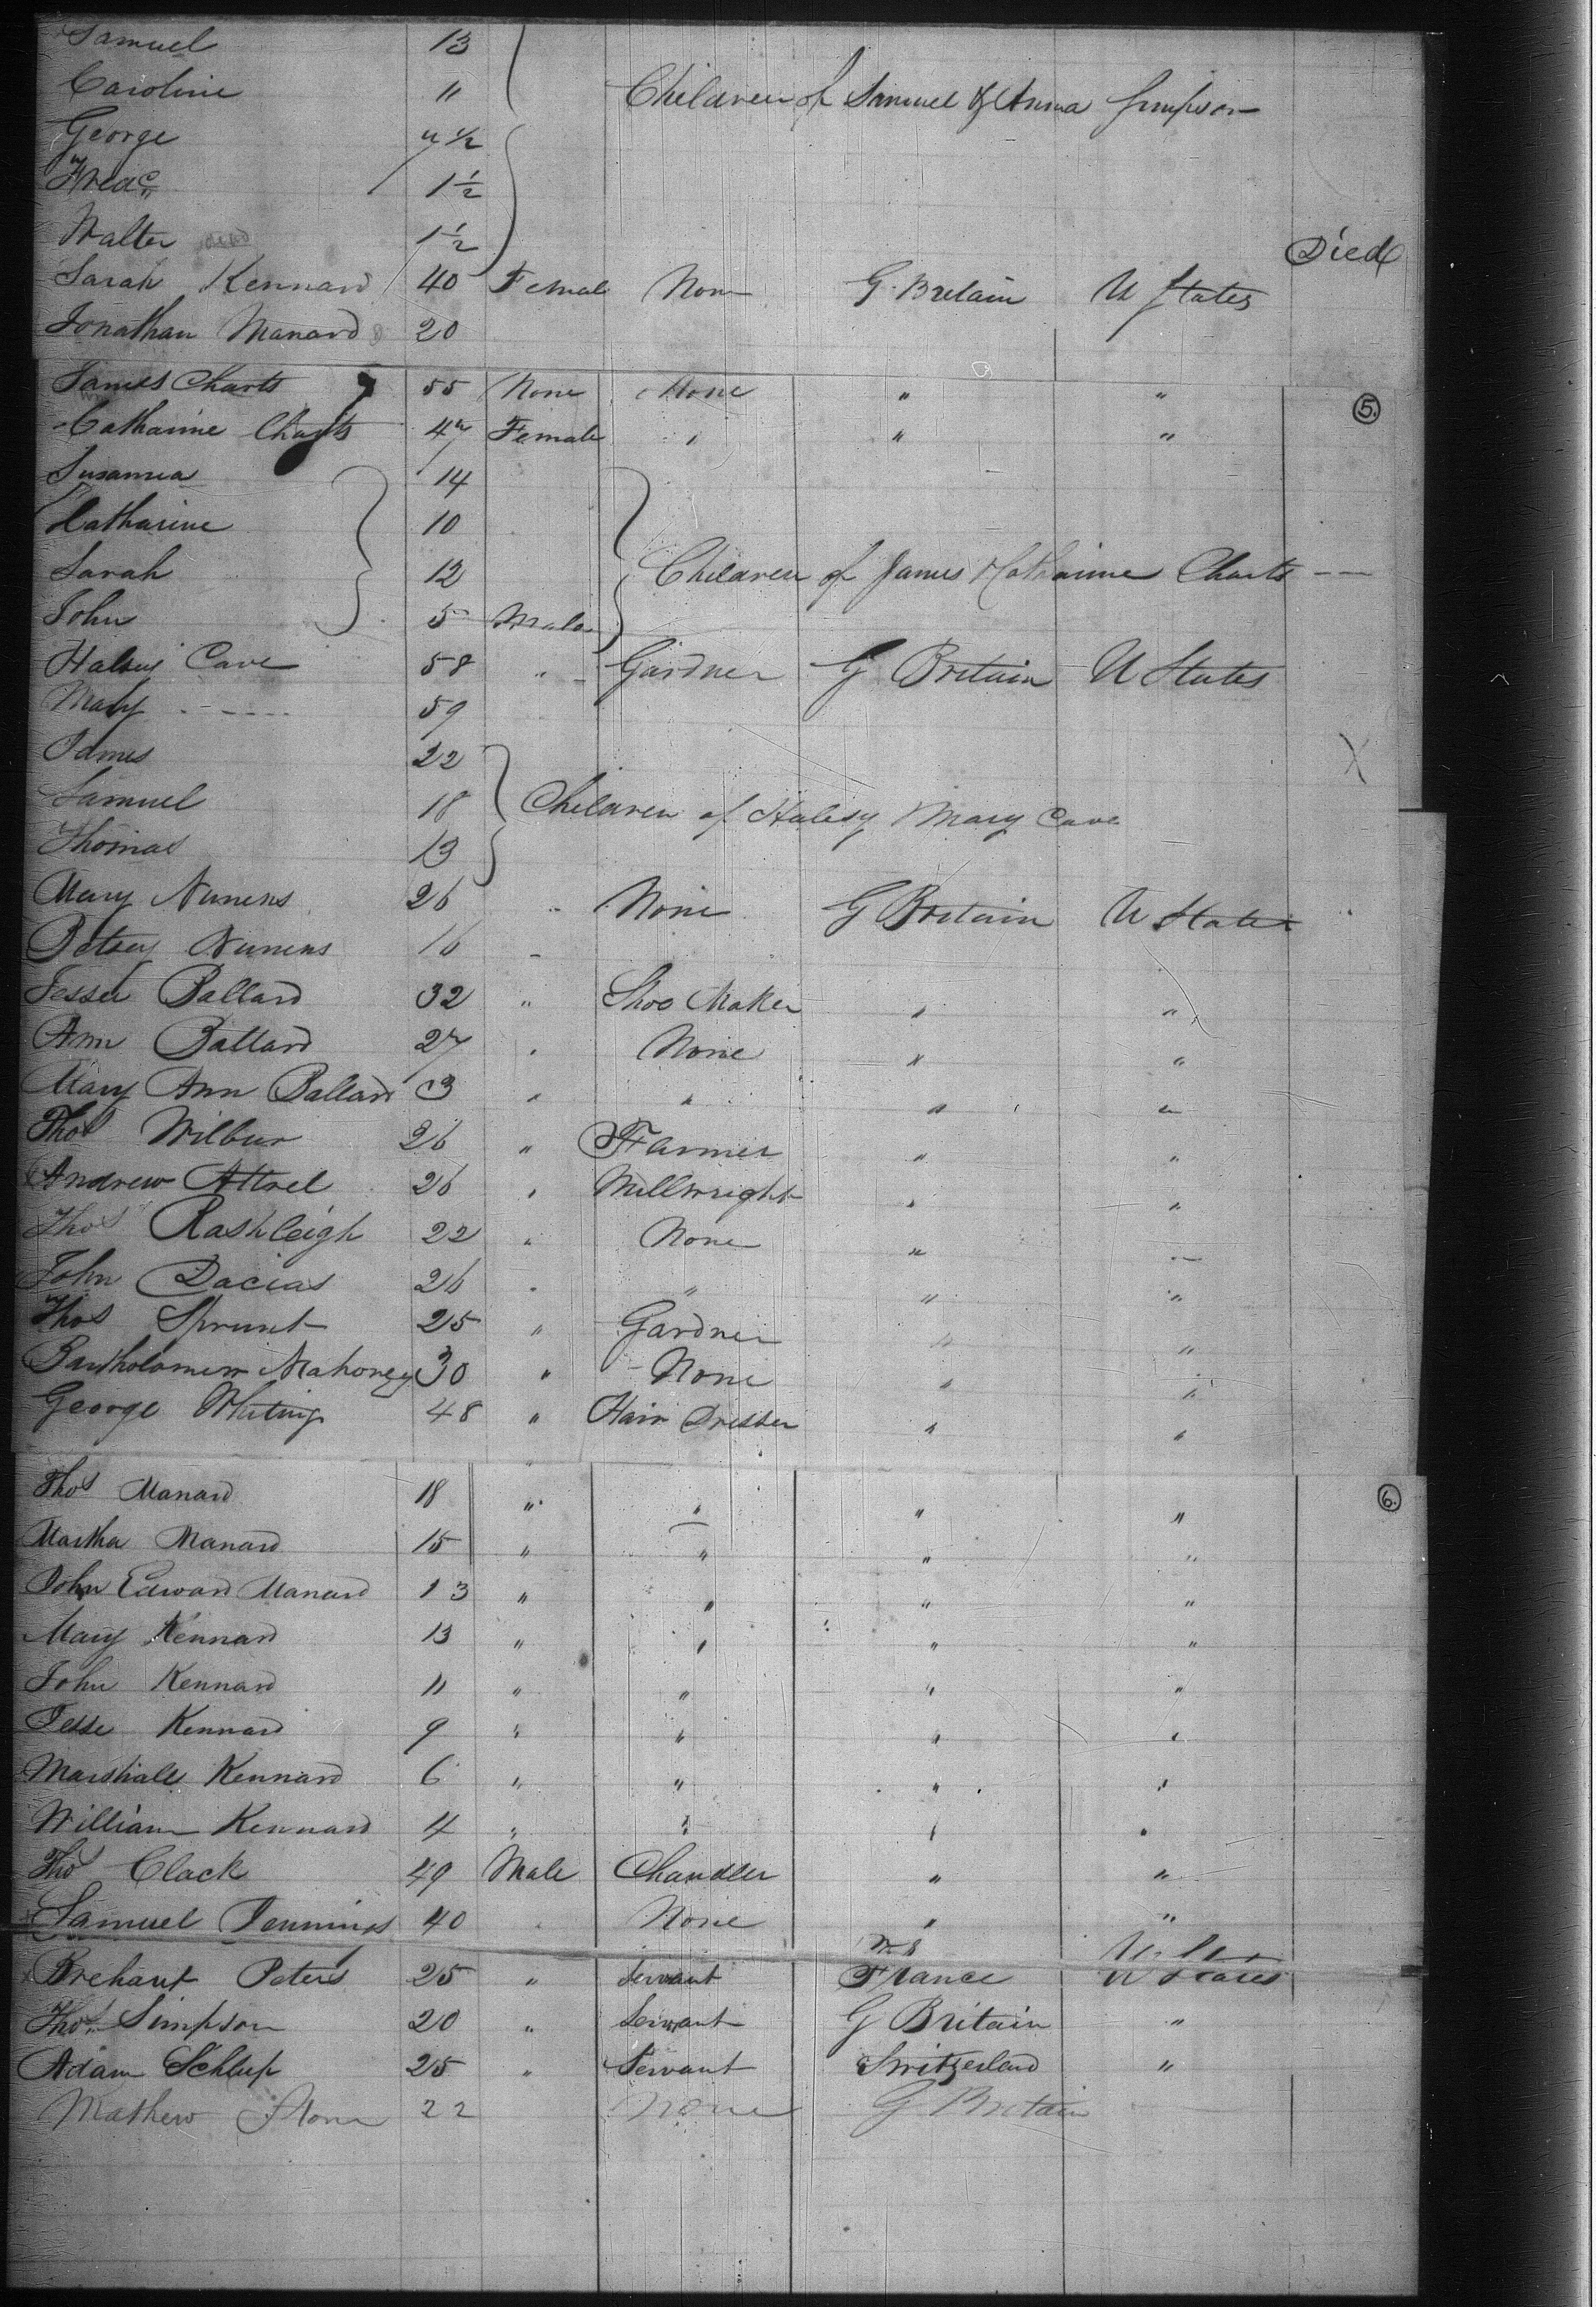 Samuel 13
Caroline 11 Children of Samuel & Anna Simpson
George 4 1/2
Fredc 1 1/2
Walter died 1 1/2 Died
Sarah Kennard 40 Female None G. Britain U States
Jonathan Manard 20
James Charts 55 None None " " 5.
Catharine Charts 47 Female " " "
Susanna 14
Catharine 10
Sarah 12 Children of James & Catharine Charts
John 5 Male
Halsey Cave 58 " Gardner G Britain U States
Mary - - - - - 59
James 22 X
Samuel 18 Children of Halesy & Mary Cave
Thomas 13
Mary Nunens 26 " None G Britain U States
Betsey Nunens 16 "
Jesse Ballard 32 " Shoe Maker " "
Ann Ballard 27 " None " "
Mary Ann Ballard 3 " " " "
Thos Wilbur 26 " Farmer " "
Andrew Attrel 26 " Millwright " "
Thos Rashleigh 22 " None " "
John Dacias 26 " " " "
Thos Sprunt 25 " Gardner " "
Bartholomew Mahoney 30 " None " "
George Whiting 48 " Hair Dresser " "
Thos Manard 18 " " " " 6.
Martha Manard 15 " " " "
John Edward Manard 13 " " " "
Mary Kennard 13 " " " "
John Kennard 11 " " " "
Jesse Kennard 9 " " " "
Marshall Kennard 6 " " " "
William Kennard 4 " " " "
Thos Clack 49 Male Chandler " "
Samuel Jennings 40 " None " "
Brehaut Peters 25 " Servant France U States
Thos Simpson 20 " Servant G Britain "
Adam Schlup 25 " Servant Switzerland "
Mathew Stone 22 None G Britain